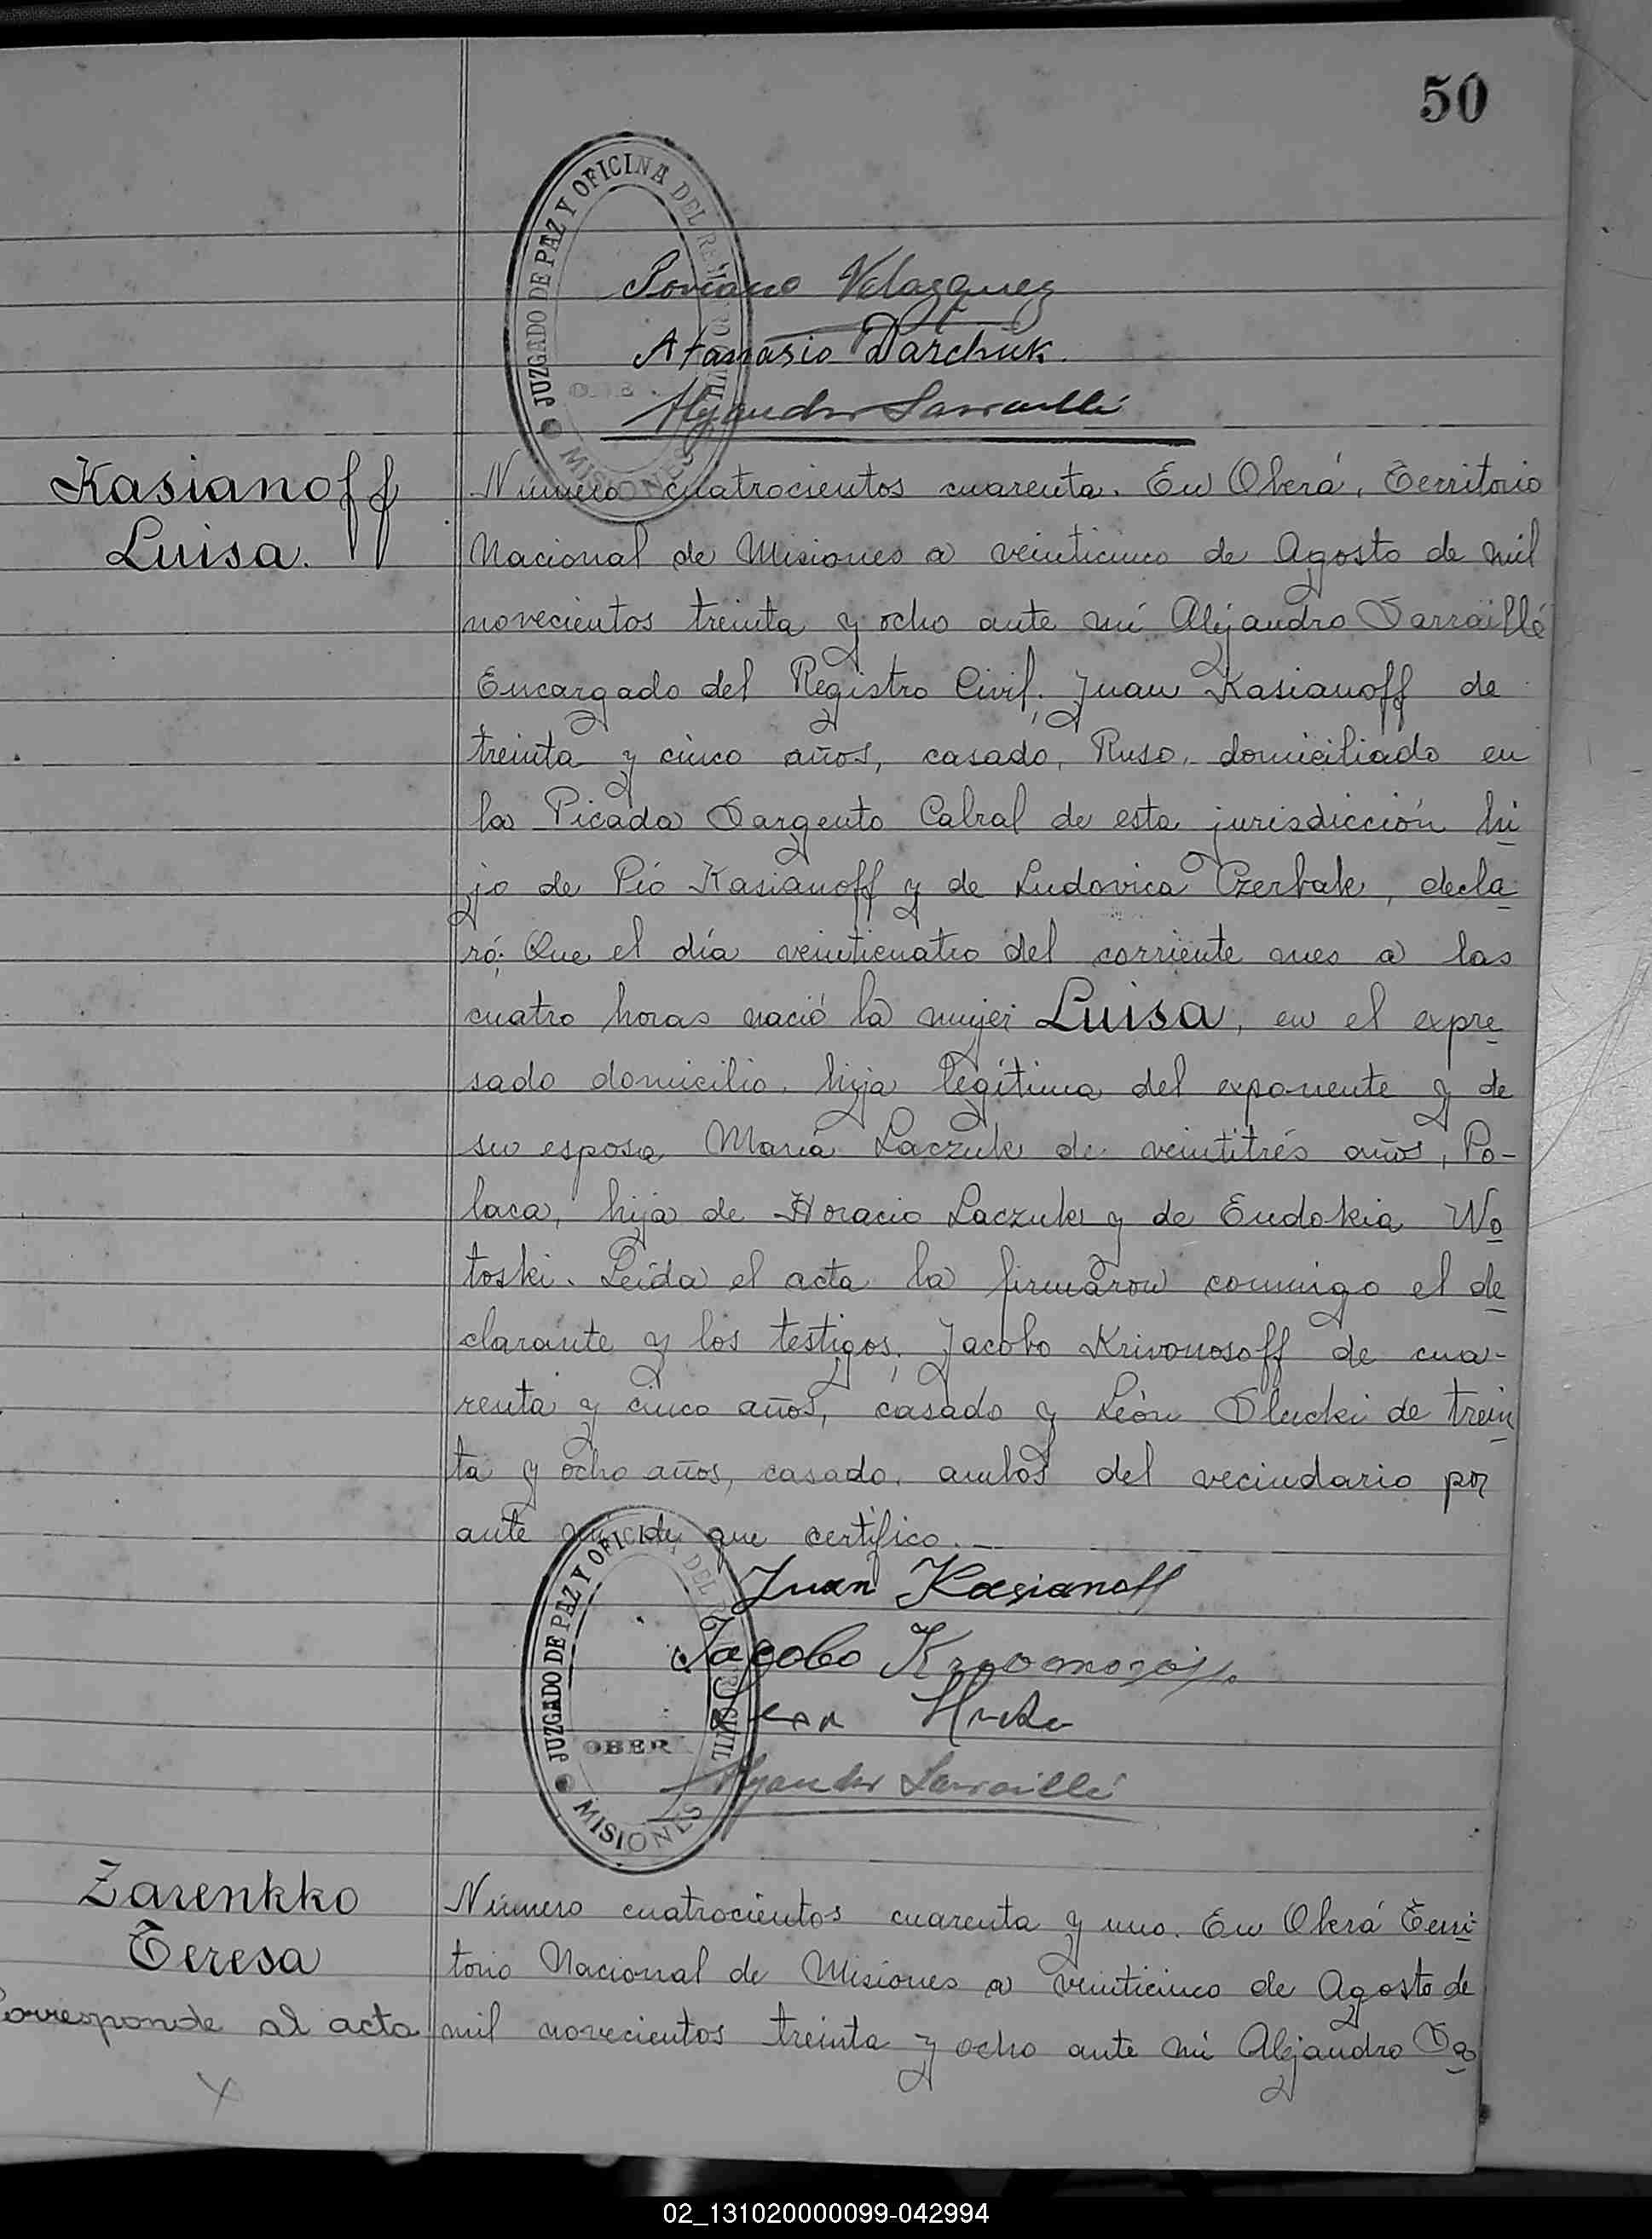 50
JUZGADO DE PAZ Y OFICINA DEL REGISTRO CIVIL
MISIONES
Velazquez
Atanasio Darchuk.
Alejandro Sarraillé
Kasianoff
Luisa.
Número cuatrocientos cuarenta. En Oberá, Territorio
Nacional de Misiones a veinticinco de Agosto de mil
novecientos treinta y ocho ante mí Alejandro Sarraillé
Encargado del Registro Civil; Juan Kasianoff de
treinta y cinco años, casado, Ruso, domiciliado en
la Picada Sargento Cabral de esta jurisdicción hi
jo de Pió Kasianoff y de Ludovica Czerbak, decla
ró: Que el día veinticuatro del corriente mes a las
cuatro horas nació la mujer Luisa, en el expre
sado domicilio, hija legítima del exponente y de
su esposa María Laczuk de veintitrés años, Po-
laca, hija de Horacio Laczuk y de Eudokia Wo
toski. Leída el acta la firmaron conmigo el de
clarante y los testigos; Jacobo Krivonosoff de cua-
renta y cinco años, casado y León Slucki de trein
ta y ocho años, casado, ambos del vecindario por
ante mí de que certifico.—
JUZGADO DE PAZ Y OFICINA DEL REGISTRO CIVIL
OBERA
MISIONES
Juan Kasianoff
Jacobo
Alejandro Sarraillé
Zarenkko
Teresa
Corresponde al acta
X
Número cuatrocientos cuarenta y uno. En Oberá Terri-
torio Nacional de Misiones a veinticinco de Agosto de
mil novecientos treinta y ocho ante mí Alejandro Sa
02_131020000099-042994